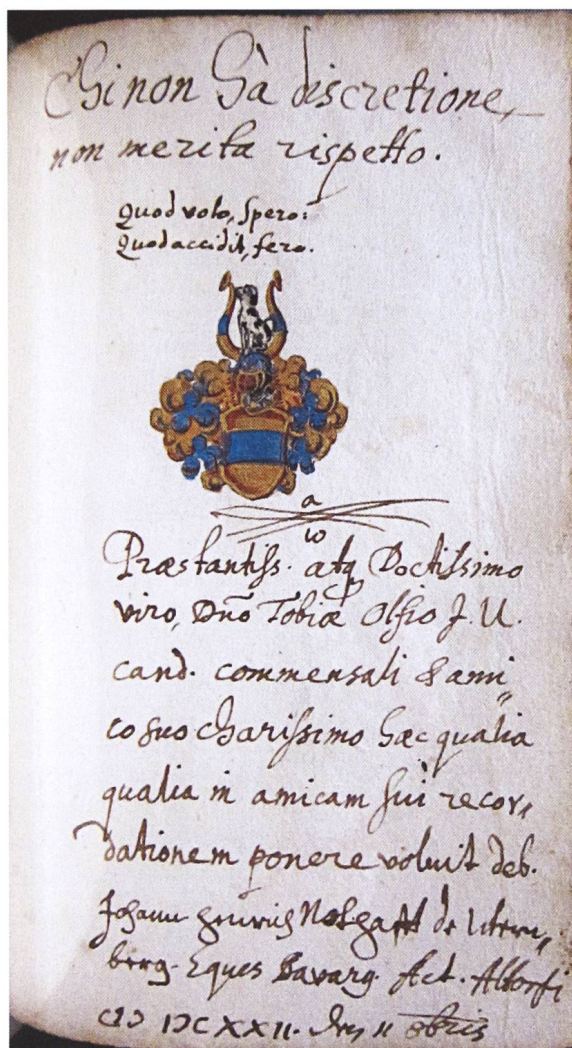 Chi non hà discretione,
non merita rispetto.
Quod volo, spero:
Quod accidit, fero.
a
ω
Præstantiss. atq Doctissimo
viro, Dno Tobiæ Olfio J. U.
cand. commensali & ami⸗
co suo charissimo hæc qualia
qualia in amicam sui recor⸗
dationem ponere voluit deb.
Johann Heinrich de
berg. Eques Bavarg. Act. Altorfi
CIƆ IƆCXXII. 11 obris